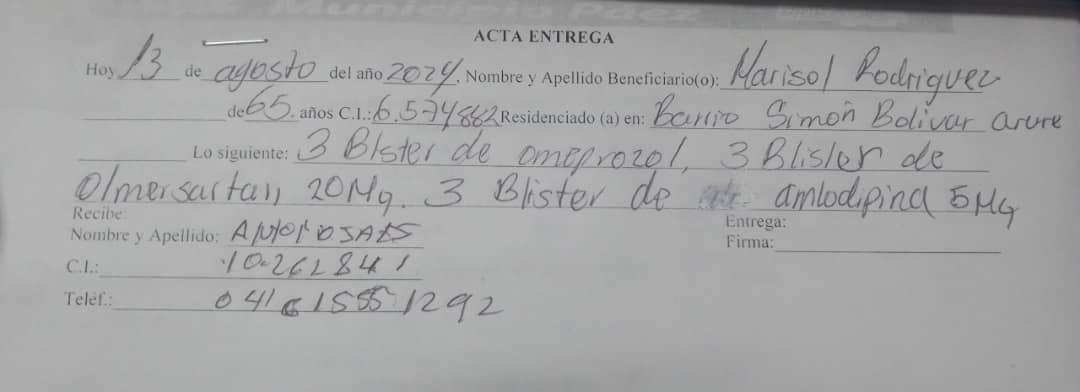 Municipio Páez
ACTA ENTREGA
Hoy 13 de agosto del año 2024. Nombre y Apellido Beneficiario(o): Marisol Rodriguez
de 65. años C.I.: 6.574882 Residenciado (a) en: Barrio Simón Bolivar arure
Lo siguiente: 3 Blster de omeprozol, 3 Blister de
Olmersartan, 20Mg. 3 Blister de amlodipina 5Mg
Recibe:
Entrega:
Nombre y Apellido:
Firma:
C.I.: 10.262841
Teléf.: